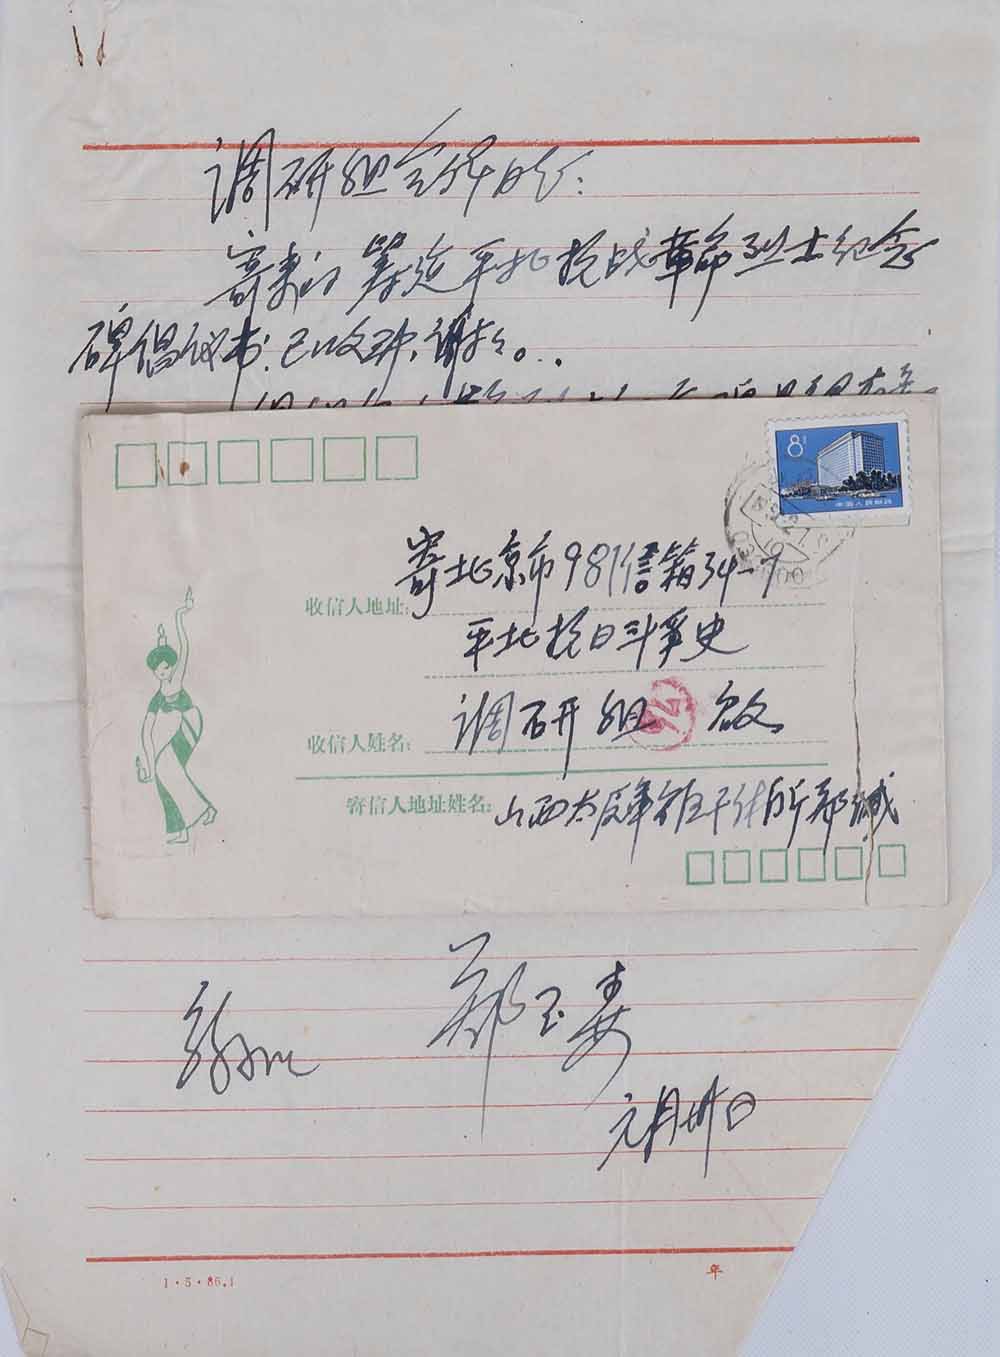 调研组全体同志：
寄来的筹建平北抗战革命烈士纪念
碑倡议书，已收到，谢谢。
8分
中国人民邮政
寄北京市981信箱34-7
收信人地址：
平北抗日斗争史
收信人姓名：
调研组 启
寄信人地址姓名：
山西太原军区干休所郑缄
敬礼
郑玉
元月卅日
1·5·86.1
年